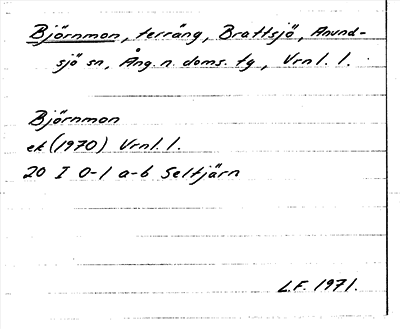 Björnmon, terräng, Brattsjö, Anund-
sjö sn, Ång. n. doms. tg, Vrnl. l.
Björnmon
ek (1970) Vrnl. l.
20 I 0-1 a-b Seltjärn
L.F. 1971.